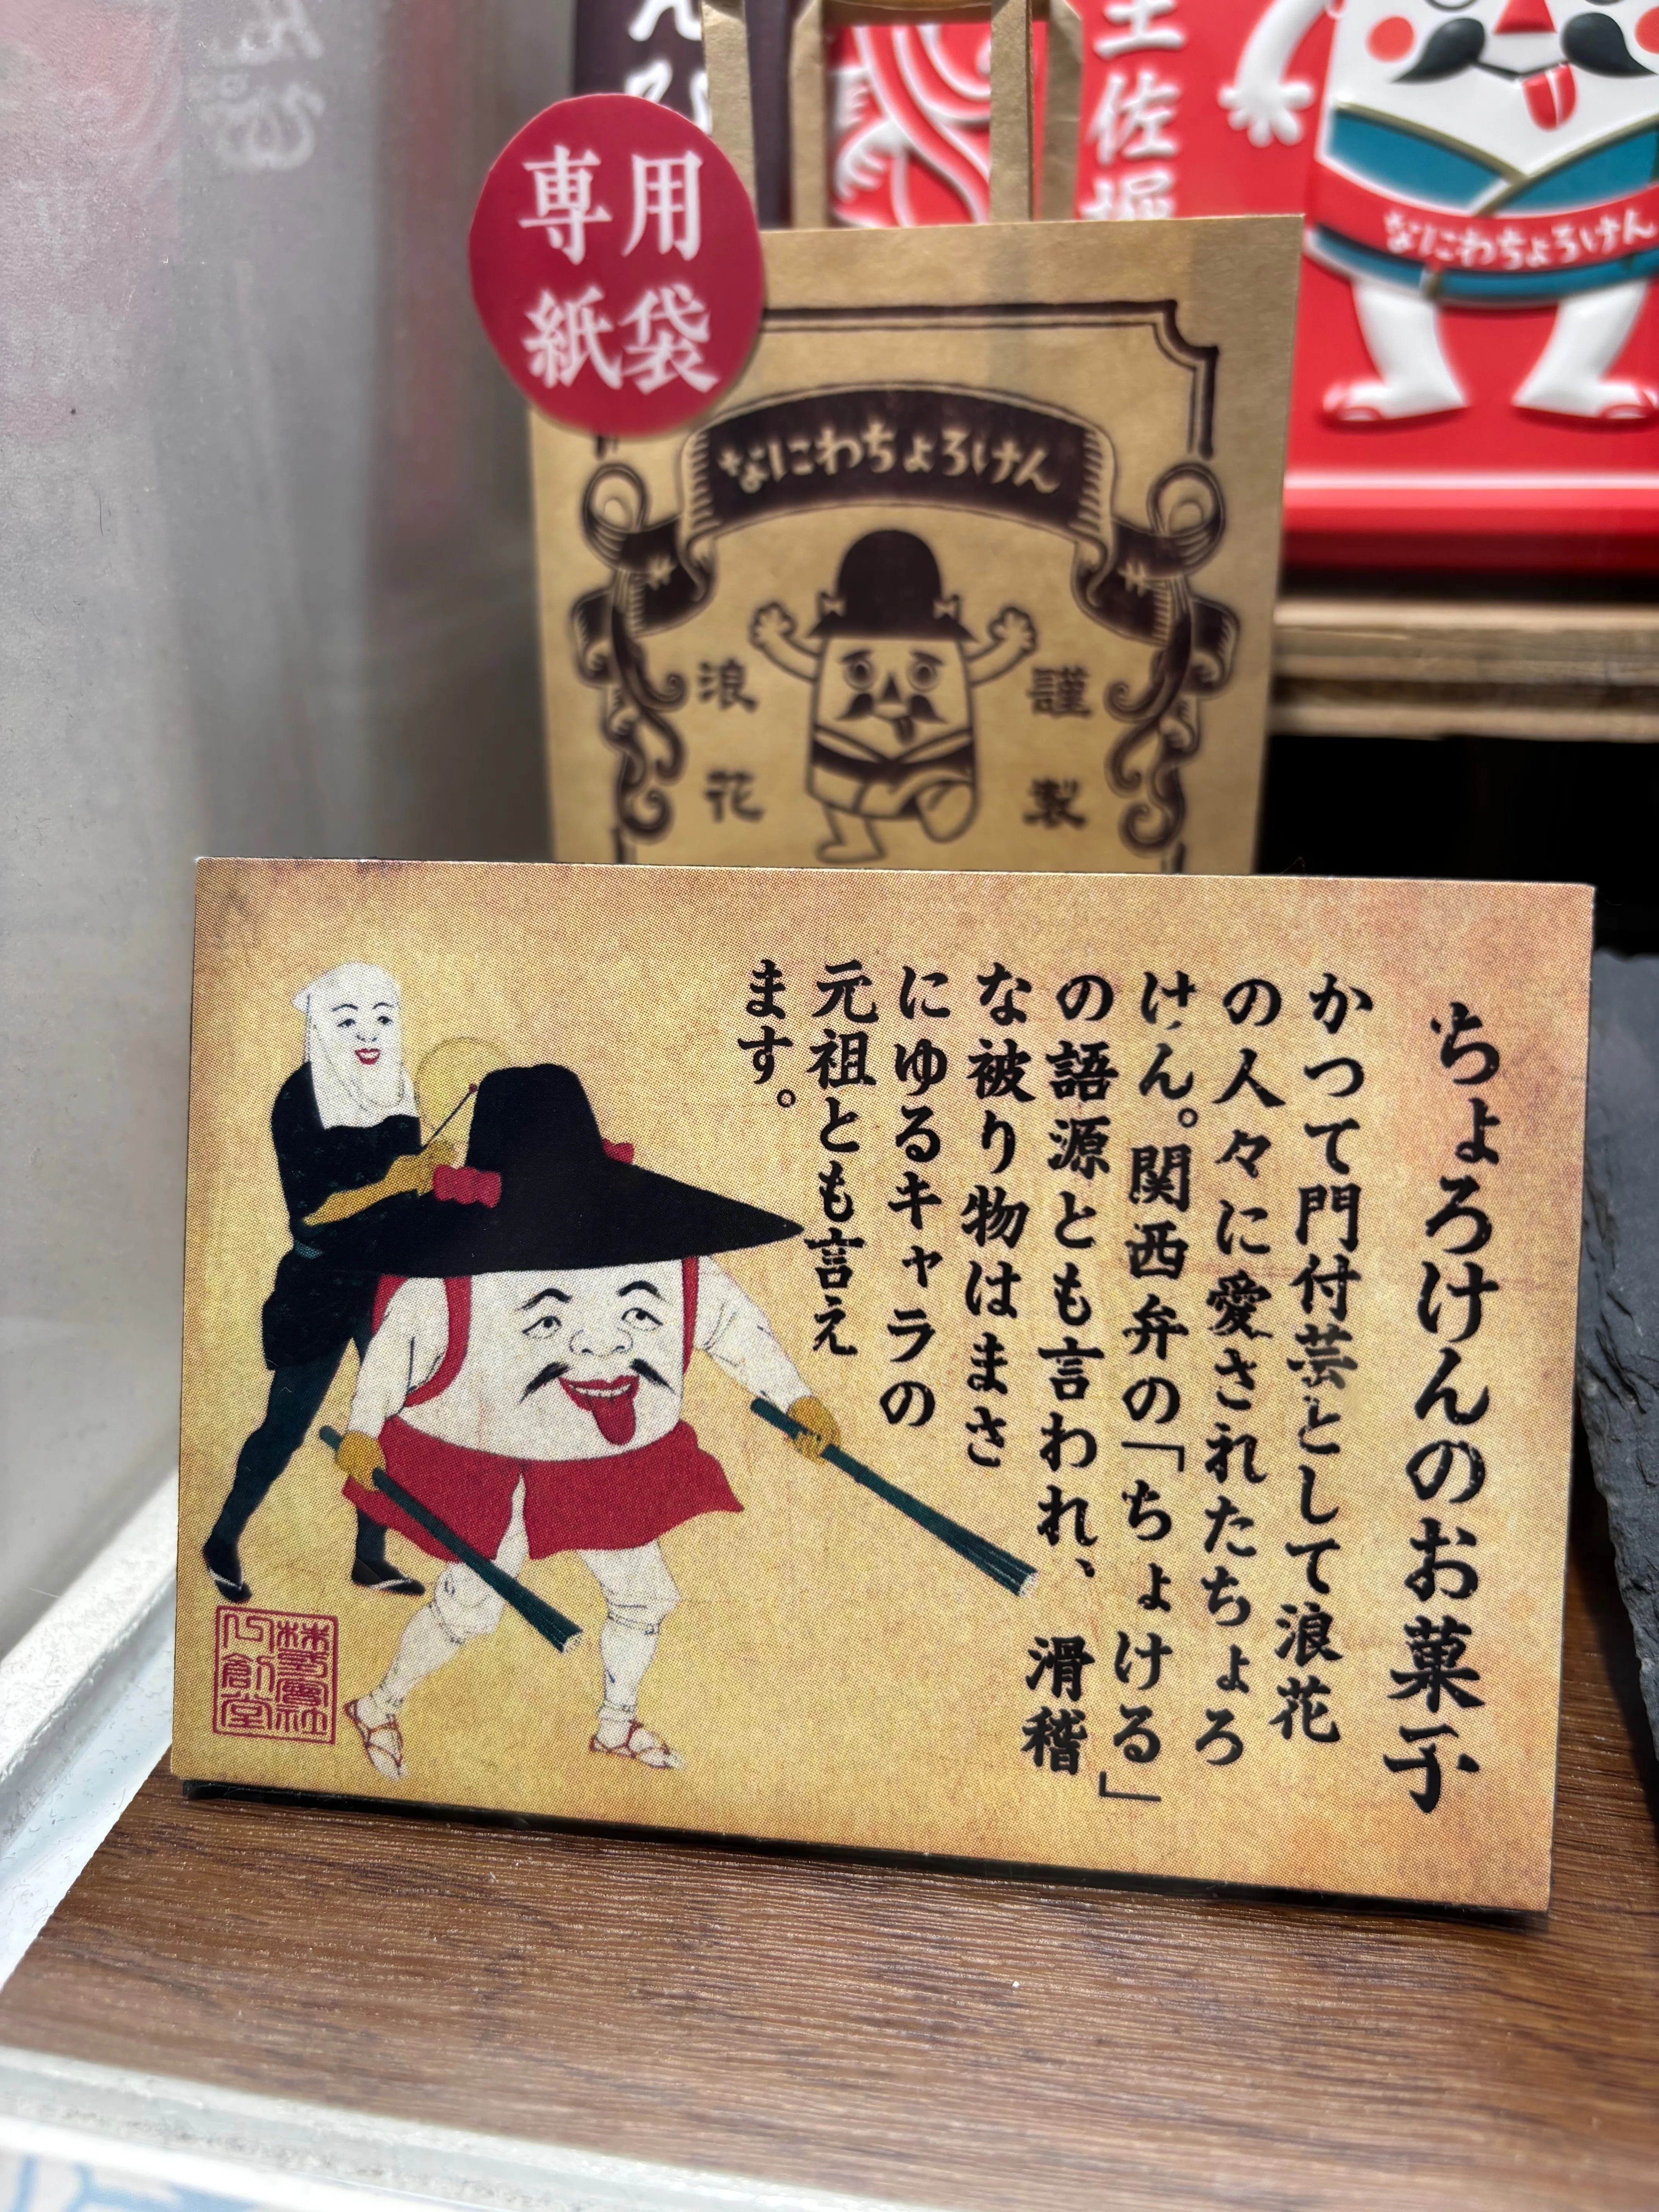 専用
紙袋
なにわちょろけん
謹製
浪花
土佐堀
なにわちょろけん
ちょろけんのお菓子
かつて門付芸として浪花
の人々に愛されたちょろ
けん。関西弁の「ちょける」
の語源とも言われ、滑稽
な被り物はまさ
にゆるキャラの
元祖とも言え
ます。